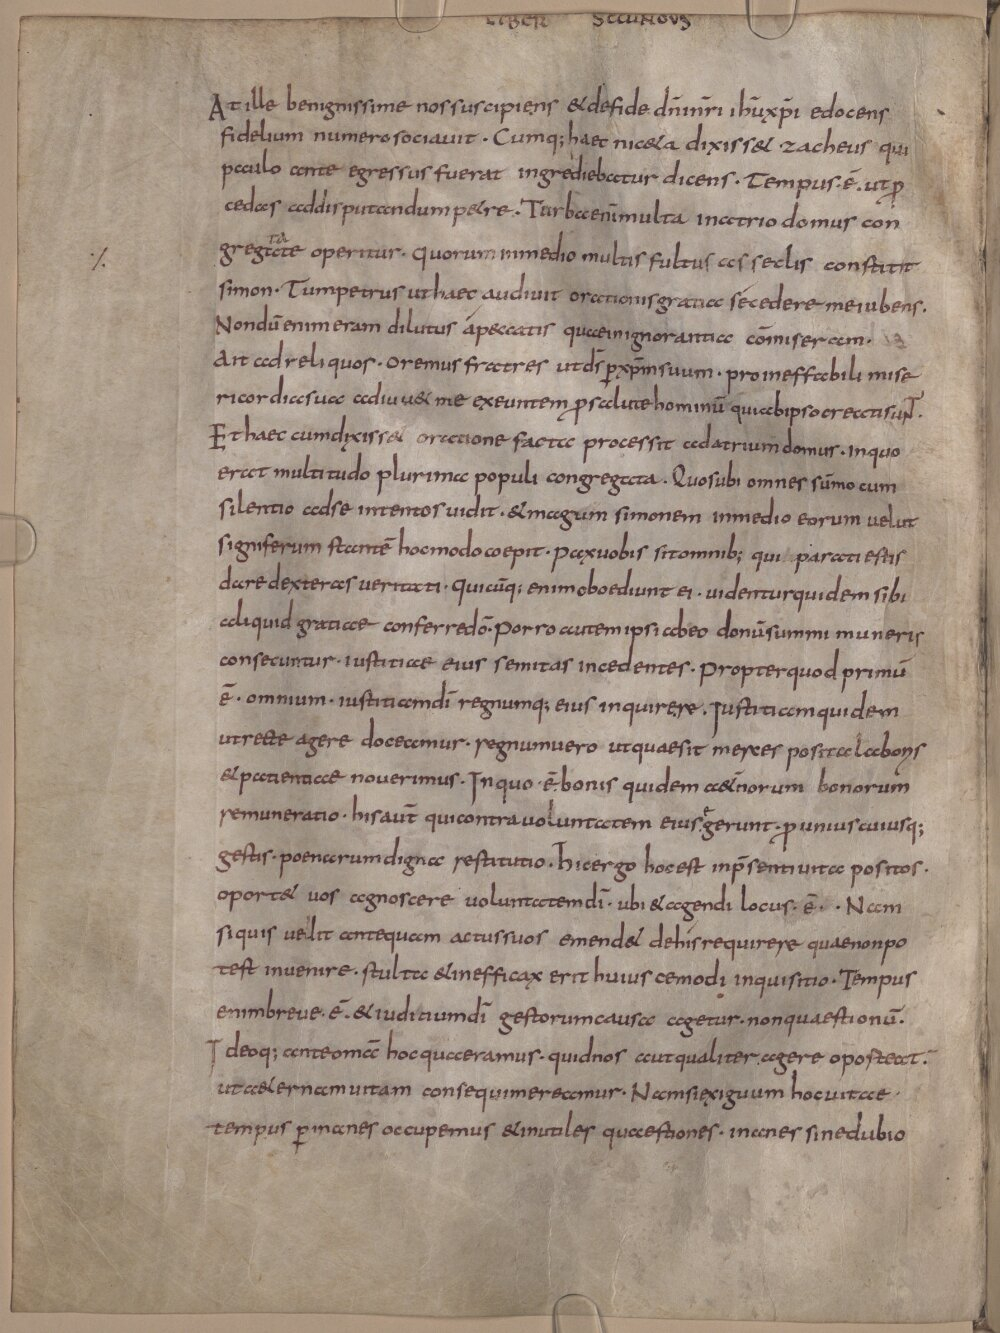 LIBER SECUNDUS
At ille benignissime nos suscipiens & defide dn̄i nr̄i ih̄u xp̄i edocens
fidelium numero sociavit · Cumq; haec nic&a dixiss& zacheus qui
paulo ante egressus fuerat ingrediebatur dicens · Tempus · ē · ut p
cedas ad disputandum petre · Turba enī multa in atrio domus con
gregata te operitur · quorum in medio multis fultus asseclis constitit
simon · Tum petrus ut haec audivit orationis gratia secedere me iubens ·
Nondū enim eram dilutus a peccatis quae in ignorantia cōmiseram ·
Ait ad reliquos · oremus fratres ut ds̄ p xp̄m suum · pro ineffabili mise
ricordia sua adiuv& me exeuntem p salute hominū qui ab ipso creati sunt ·
Et haec cum dixiss& oratione facta processit ad atrium domus · in quo
erat multitudo plurima populi congregata · Quos ubi omnes sūmo cum
silentio ad se intentos vidit · & magum simonem in medio eorum velut
signiferum stantē hoc modo coepit · pax vobis sit omnib; qui parati estis
dare dexteras veritati · quicūq; enim oboediunt ei · videntur quidem sibi
aliquid gratiae conferre dō · Porro autem ipsi ab eo donū summi muneris
consecuntur · iustitiae eius semitas incedentes · Propter quod primū
ē · omnium · iustitiam dī regnumq; eius inquirere · Iustitiam quidem
ut recte agere doceamur · regnum vero ut quae sit merces posita laboris
& patientiae noverimus · In quo · ē · bonis quidem aet̄norum bonorum
remuneratio · his aut̄ qui contra voluntatem eius gerunt · p unius cuiusq;
gestis · poenarum digna restitutio · hic ergo hoc est in p̄senti vita positos ·
oport& vos agnoscere voluntatem dī · ubi & agendi locus · ē · · Nam
si quis velit antequam actus suos emend& de his requirere quae non po
test invenire · stulta & inefficax erit huiuscemodi inquisitio · Tempus
enim breve · ē · & iuditium dī gestorum causa agetur · non quaestionū ·
Ideoq; ante omā hoc quaeramus · quid nos aut qualiter agere oporteat ·
ut aeternam vitam consequi mereamur · Nam si exiguum hoc vitae ·
tempus p inanes occupemus & inutiles quaestiones · inanes sine dubio